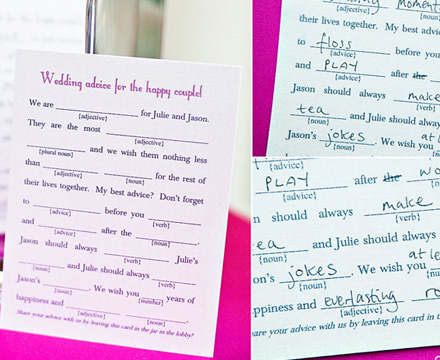 Wedding advice for the happy couple!
We are ____________ for Julie and Jason.
{adjective}
They are the most ____________
{adjective}
____________ and we wish them nothing less
{plural noun}
than ________ ________ for the rest of
{adjective} {noun}
their lives together. My best advice? Don't forget
to ____________ before you ________
{advice} {verb}
and ________ after the ____________.
{advice} {noun}
Jason should always ____________ Julie's
{verb}
________ and Julie should always ________
{noun} {verb}
Jason's ________. We wish you ______ years of
{noun} {number}
happiness and ________ ________.
{adjective} {noun}
Share your advice with us by leaving this card in the jar in the lobby!
moment
{adjective} {noun
their lives together. My best advic
to floss before you
{advice}
and PLAY after the
{advice}
Jason should always make
{verb}
tea and Julie should always
{noun}
Jason's jokes. We wish you
{noun}
PLAY after the wo
{advice}
n should always make
{verb}
ea and Julie should always
{noun}
on's jokes. We wish you at le
{noun}
ppiness and everlasting ro
{adjective}
are your advice with us by leaving this card in t